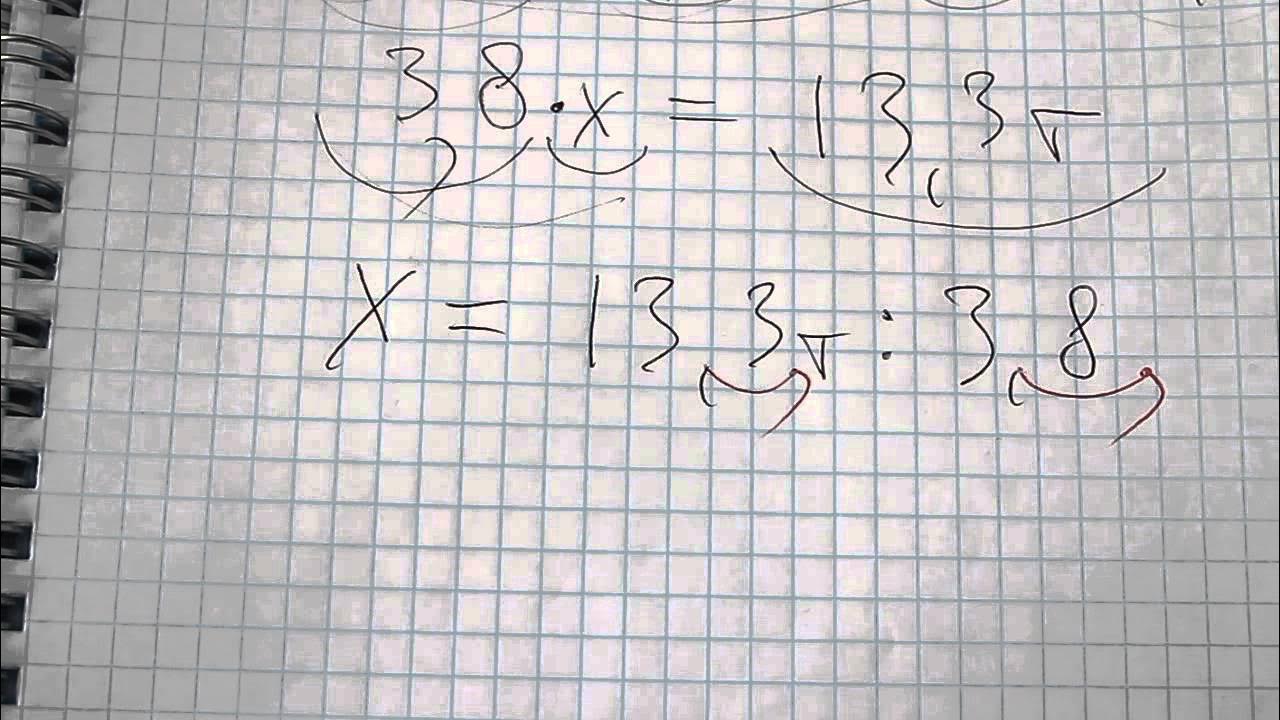 3,8·x = 13,3
x = 13,3 : 3,8